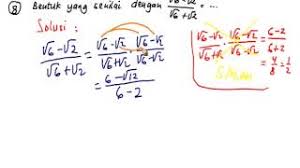 ⑧ Bentuk yang senilai dengan (√6-√2)/(√6+√2) = ...
Solusi :
(√6-√2)/(√6+√2) = (√6-√2)/(√6+√2) (√6-√2)/(√6-√2)
= (6-√12)/(6-2)
(√6-√2)/(√6+√2) · (√6-√2)/(√6+√2) = (6-2)/(6+2)
= 4/8 = 1/2
SALAH